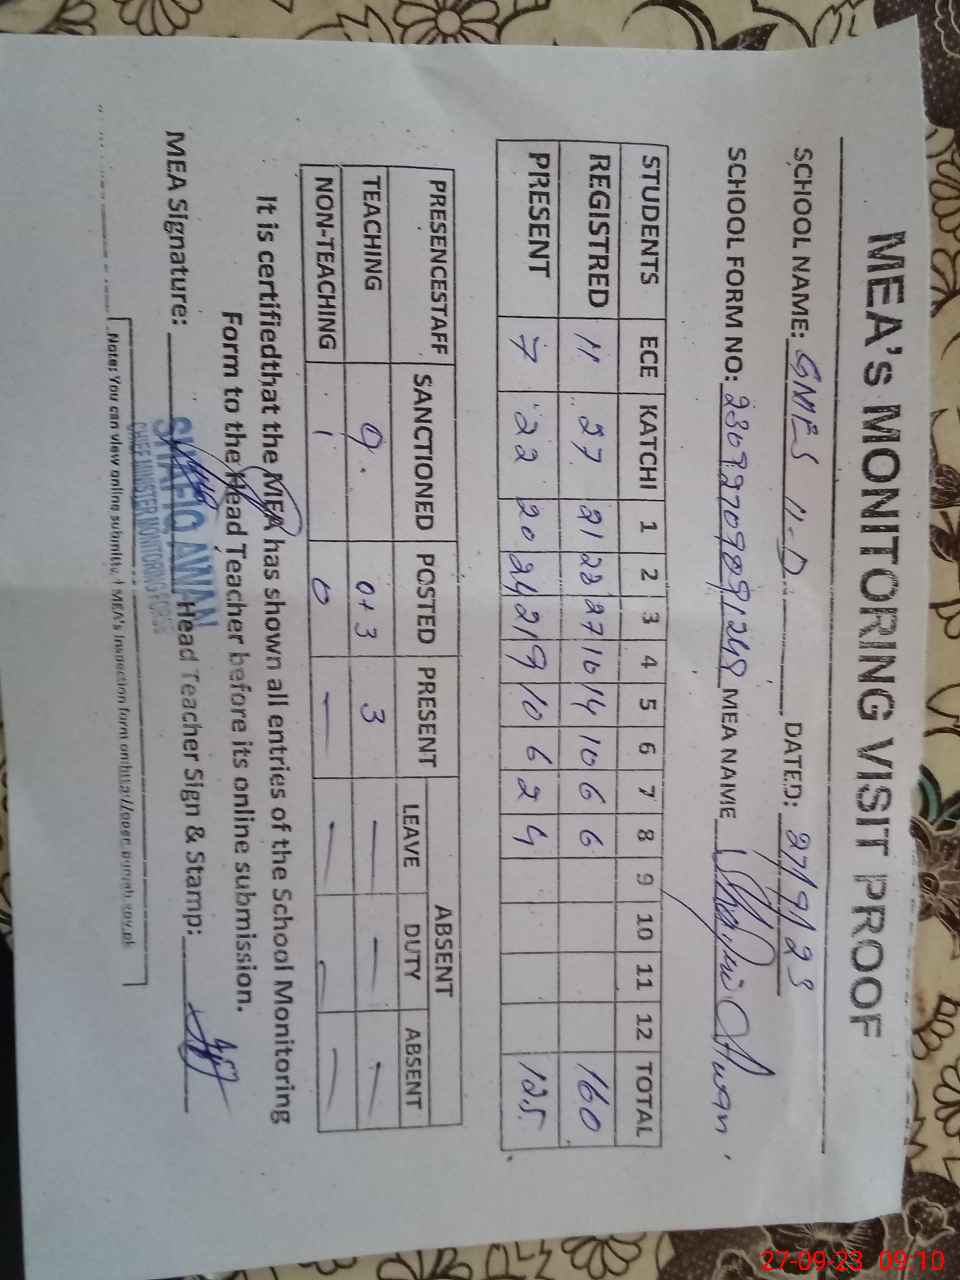 MEA's MONITORING VISIT PROOF
SCHOOL NAME: GMES 11-D DATED: 27/9/23
SCHOOL FORM NO: MEA NAME Shafiq Awan
STUDENTS ECE KATCHI 1 2 3 4 5 6 7 8 9 10 11 12 TOTAL
REGISTRED 11 27 21 28 27 10 14 10 6 6 160
PRESENT 7 22 20 24 21 9 10 6 2 4 125
PRESENCESTAFF SANCTIONED POSTED PRESENT ABSENT
LEAVE DUTY ABSENT
TEACHING 9 0+3 3 — — —
NON-TEACHING 1 0 — — — —
It is certifiedthat the MEA has shown all entries of the School Monitoring
Form to the Head Teacher before its online submission.
MEA Signature: Head Teacher Sign & Stamp:
SHAFIQ AWAN
CHIEF MINISTER MONITORING FORCE
Note: You can view online submitted MEA's Inspection form on
27-09-23 09:10